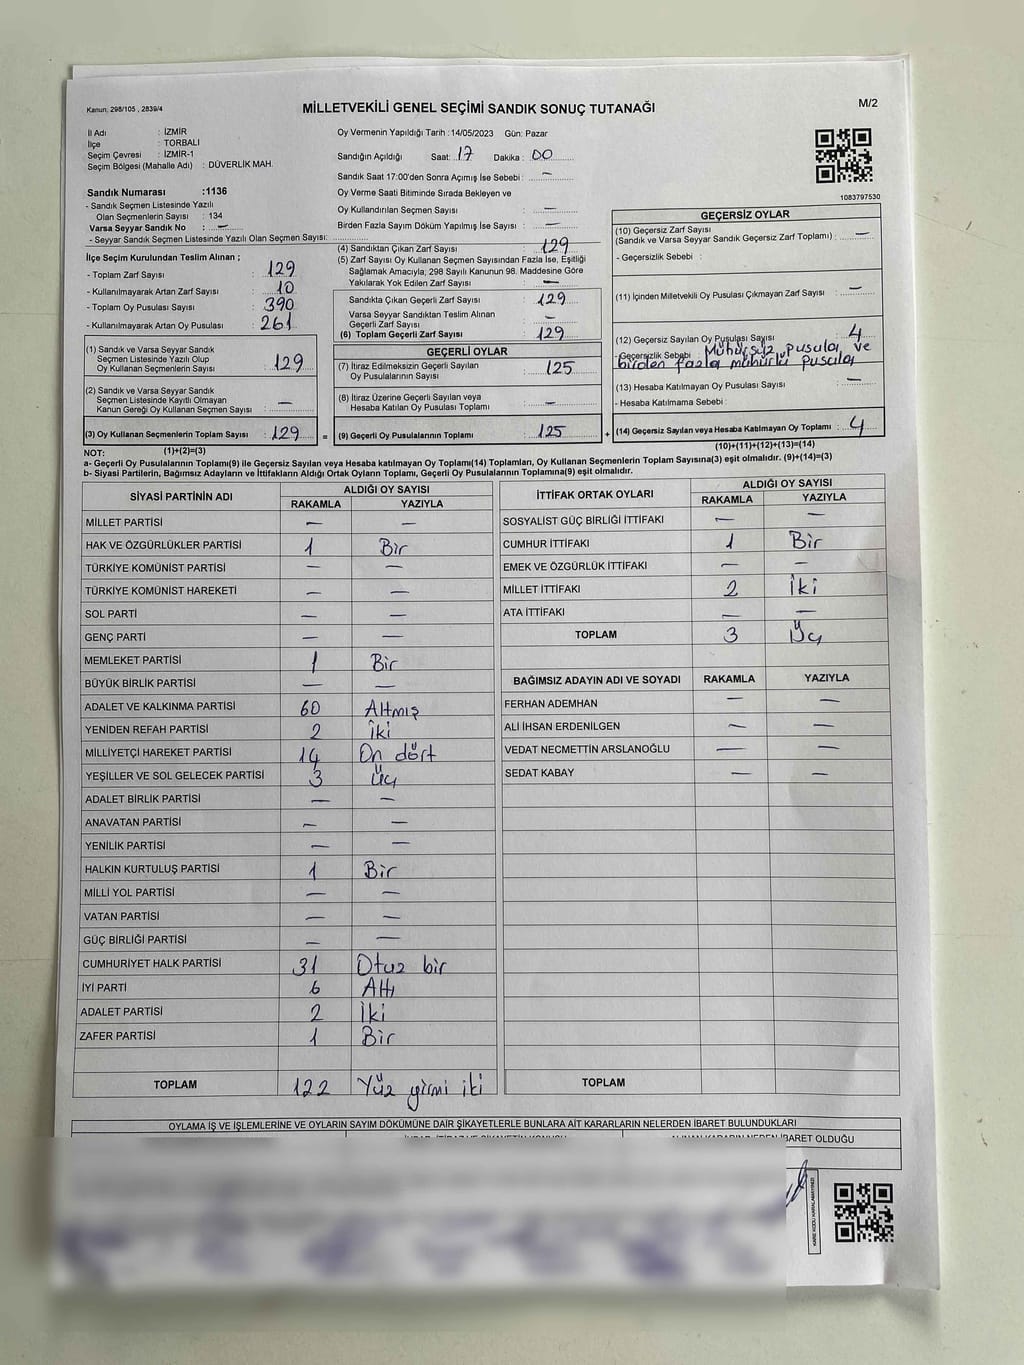 Kanun: 298/105 , 2839/4
MİLLETVEKİLİ GENEL SEÇİMİ SANDIK SONUÇ TUTANAĞI
M/2
İl Adı : İZMİR
İlçe : TORBALI
Seçim Çevresi : İZMİR-1
Seçim Bölgesi (Mahalle Adı) : DÜVERLİK MAH.
Sandık Numarası :1136
- Sandık Seçmen Listesinde Yazılı
Olan Seçmenlerin Sayısı : 134
Varsa Seyyar Sandık No : —
- Seyyar Sandık Seçmen Listesinde Yazılı Olan Seçmen Sayısı:
Oy Vermenin Yapıldığı Tarih :14/05/2023 Gün: Pazar
Sandığın Açıldığı Saat: 17 Dakika : 00
Sandık Saat 17:00'den Sonra Açımış İse Sebebi : —
Oy Verme Saati Bitiminde Sırada Bekleyen ve
Oy Kullandırılan Seçmen Sayısı : —
Birden Fazla Sayım Döküm Yapılmış İse Sayısı : —
1083797530
İlçe Seçim Kurulundan Teslim Alınan ;
- Toplam Zarf Sayısı : 129
- Kullanılmayarak Artan Zarf Sayısı : 10
- Toplam Oy Pusulası Sayısı : 390
- Kullanılmayarak Artan Oy Pusulası : 261
(1) Sandık ve Varsa Seyyar Sandık
Seçmen Listesinde Yazılı Olup
Oy Kullanan Seçmenlerin Sayısı : 129
(2) Sandık ve Varsa Seyyar Sandık
Seçmen Listesinde Kayıtlı Olmayan
Kanun Gereği Oy Kullanan Seçmen Sayısı : —
(3) Oy Kullanan Seçmenlerin Toplam Sayısı : 129 =
(4) Sandıktan Çıkan Zarf Sayısı : 129
(5) Zarf Sayısı Oy Kullanan Seçmen Sayısından Fazla İse, Eşitliği
Sağlamak Amacıyla; 298 Sayılı Kanunun 98. Maddesine Göre
Yakılarak Yok Edilen Zarf Sayısı : —
Sandıkta Çıkan Geçerli Zarf Sayısı : 129
Varsa Seyyar Sandıktan Teslim Alınan
Geçerli Zarf Sayısı : —
(6) Toplam Geçerli Zarf Sayısı : 129
GEÇERLİ OYLAR
(7) İtiraz Edilmeksizin Geçerli Sayılan
Oy Pusulalarının Sayısı : 125
(8) İtiraz Üzerine Geçerli Sayılan veya
Hesaba Katılan Oy Pusulası Toplamı : —
(9) Geçerli Oy Pusulalarının Toplamı : 125 +
GEÇERSİZ OYLAR
(10) Geçersiz Zarf Sayısı
(Sandık ve Varsa Seyyar Sandık Geçersiz Zarf Toplamı) : —
- Geçersizlik Sebebi :
(11) İçinden Milletvekili Oy Pusulası Çıkmayan Zarf Sayısı : —
(12) Geçersiz Sayılan Oy Pusulası Sayısı : 4
- Geçersizlik Sebebi : Mühürsüz pusula ve
birden fazla mühürlü pusula
(13) Hesaba Katılmayan Oy Pusulası Sayısı : —
- Hesaba Katılmama Sebebi :
(14) Geçersiz Sayılan veya Hesaba Katılmayan Oy Toplamı : 4
NOT: (1)+(2)=(3)
(10)+(11)+(12)+(13)=(14)
a- Geçerli Oy Pusulalarının Toplamı(9) ile Geçersiz Sayılan veya Hesaba katılmayan Oy Toplamı(14) Toplamları, Oy Kullanan Seçmenlerin Toplam Sayısına(3) eşit olmalıdır. (9)+(14)=(3)
b- Siyasi Partilerin, Bağımsız Adayların ve İttifakların Aldığı Ortak Oyların Toplamı, Geçerli Oy Pusulalarının Toplamına(9) eşit olmalıdır.
SİYASİ PARTİNİN ADI ALDIĞI OY SAYISI
RAKAMLA YAZIYLA
MİLLET PARTİSİ — —
HAK VE ÖZGÜRLÜKLER PARTİSİ 1 Bir
TÜRKİYE KOMÜNİST PARTİSİ — —
TÜRKİYE KOMÜNİST HAREKETİ — —
SOL PARTİ — —
GENÇ PARTİ — —
MEMLEKET PARTİSİ 1 Bir
BÜYÜK BİRLİK PARTİSİ — —
ADALET VE KALKINMA PARTİSİ 60 Altmış
YENİDEN REFAH PARTİSİ 2 İki
MİLLİYETÇİ HAREKET PARTİSİ 14 On dört
YEŞİLLER VE SOL GELECEK PARTİSİ 3 Üç
ADALET BİRLİK PARTİSİ — —
ANAVATAN PARTİSİ — —
YENİLİK PARTİSİ — —
HALKIN KURTULUŞ PARTİSİ 1 Bir
MİLLİ YOL PARTİSİ — —
VATAN PARTİSİ — —
GÜÇ BİRLİĞİ PARTİSİ — —
CUMHURİYET HALK PARTİSİ 31 Otuz bir
İYİ PARTİ 6 Altı
ADALET PARTİSİ 2 İki
ZAFER PARTİSİ 1 Bir
TOPLAM 122 Yüz yirmi iki
İTTİFAK ORTAK OYLARI ALDIĞI OY SAYISI
RAKAMLA YAZIYLA
SOSYALİST GÜÇ BİRLİĞİ İTTİFAKI — —
CUMHUR İTTİFAKI 1 Bir
EMEK VE ÖZGÜRLÜK İTTİFAKI — —
MİLLET İTTİFAKI 2 İki
ATA İTTİFAKI — —
TOPLAM 3 Üç
BAĞIMSIZ ADAYIN ADI VE SOYADI RAKAMLA YAZIYLA
FERHAN ADEMHAN — —
ALİ İHSAN ERDENİLGEN — —
VEDAT NECMETTİN ARSLANOĞLU — —
SEDAT KABAY — —
TOPLAM
OYLAMA İŞ VE İŞLEMLERİNE VE OYLARIN SAYIM DÖKÜMÜNE DAİR ŞİKAYETLERLE BUNLARA AİT KARARLARIN NELERDEN İBARET BULUNDUKLARI
İBARET OLDUĞU
KARE KODU KARALAMAYINIZ!